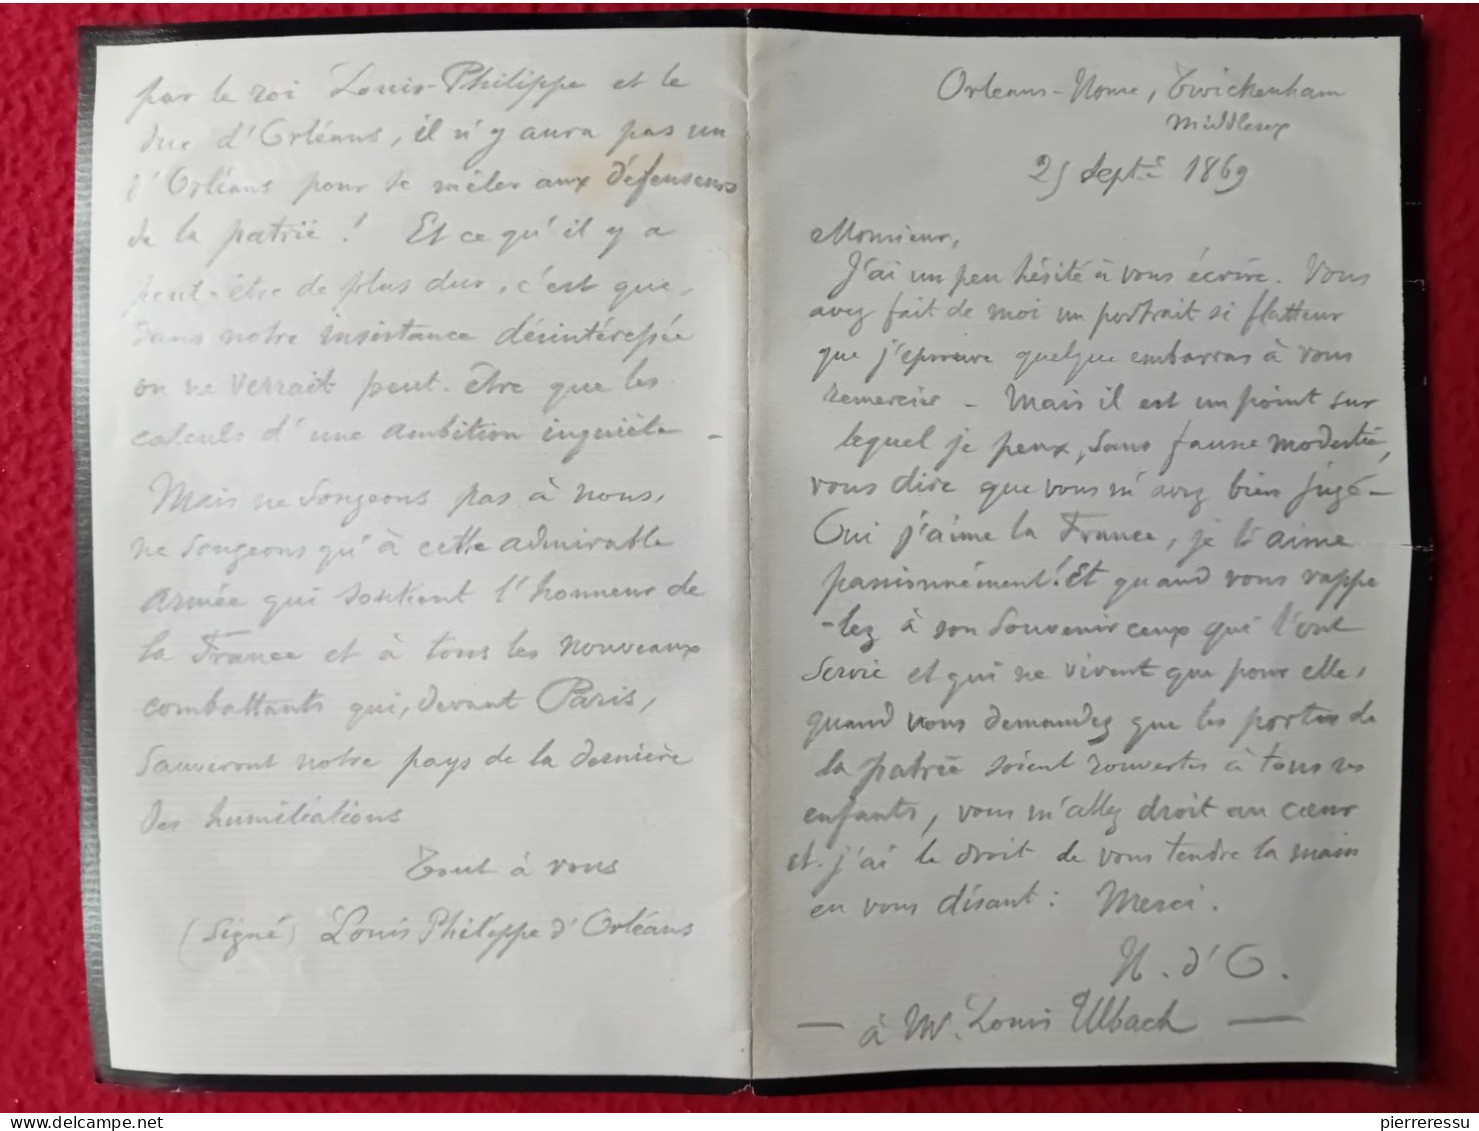 par le roi Louis-Philippe et le
duc d'Orléans, il n'y aura pas un
d'Orléans pour se mêler aux défenseurs
de la patrie ! Et ce qu'il y a
peut-être de plus dur, c'est que,
dans notre insistance désintéressée
on ne verrait peut-être que les
calculs d'une ambition inquiète -
Mais ne songeons pas à nous,
ne songeons qu'à cette admirable
armée qui soutient l'honneur de
la France et à tous les nouveaux
combattants qui, devant Paris,
sauveront notre pays de la dernière
des humiliations
Tout à vous
(signé) Louis Philippe d'Orléans
Orleans-House, Twickenham
Middlesex
25 Septe 1869
Monsieur,
J'ai un peu hésité à vous écrire. Vous
avez fait de moi un portrait si flatteur
que j'éprouve quelque embarras à vous
remercier - Mais il est un point sur
lequel je peux, sans fausse modestie,
vous dire que vous m'avez bien jugé -
Oui j'aime la France, je l'aime
passionnément ! Et quand vous rappe
-lez à son souvenir ceux qui l'ont
servie et qui ne vivent que pour elle,
quand vous demandez que les portes de
la patrie soient rouvertes à tous ses
enfants, vous m'allez droit au cœur
et j'ai le droit de vous tendre la main
en vous disant : Merci.
H. d'O.
— à Mr. Louis Ulbach —
pierreressu